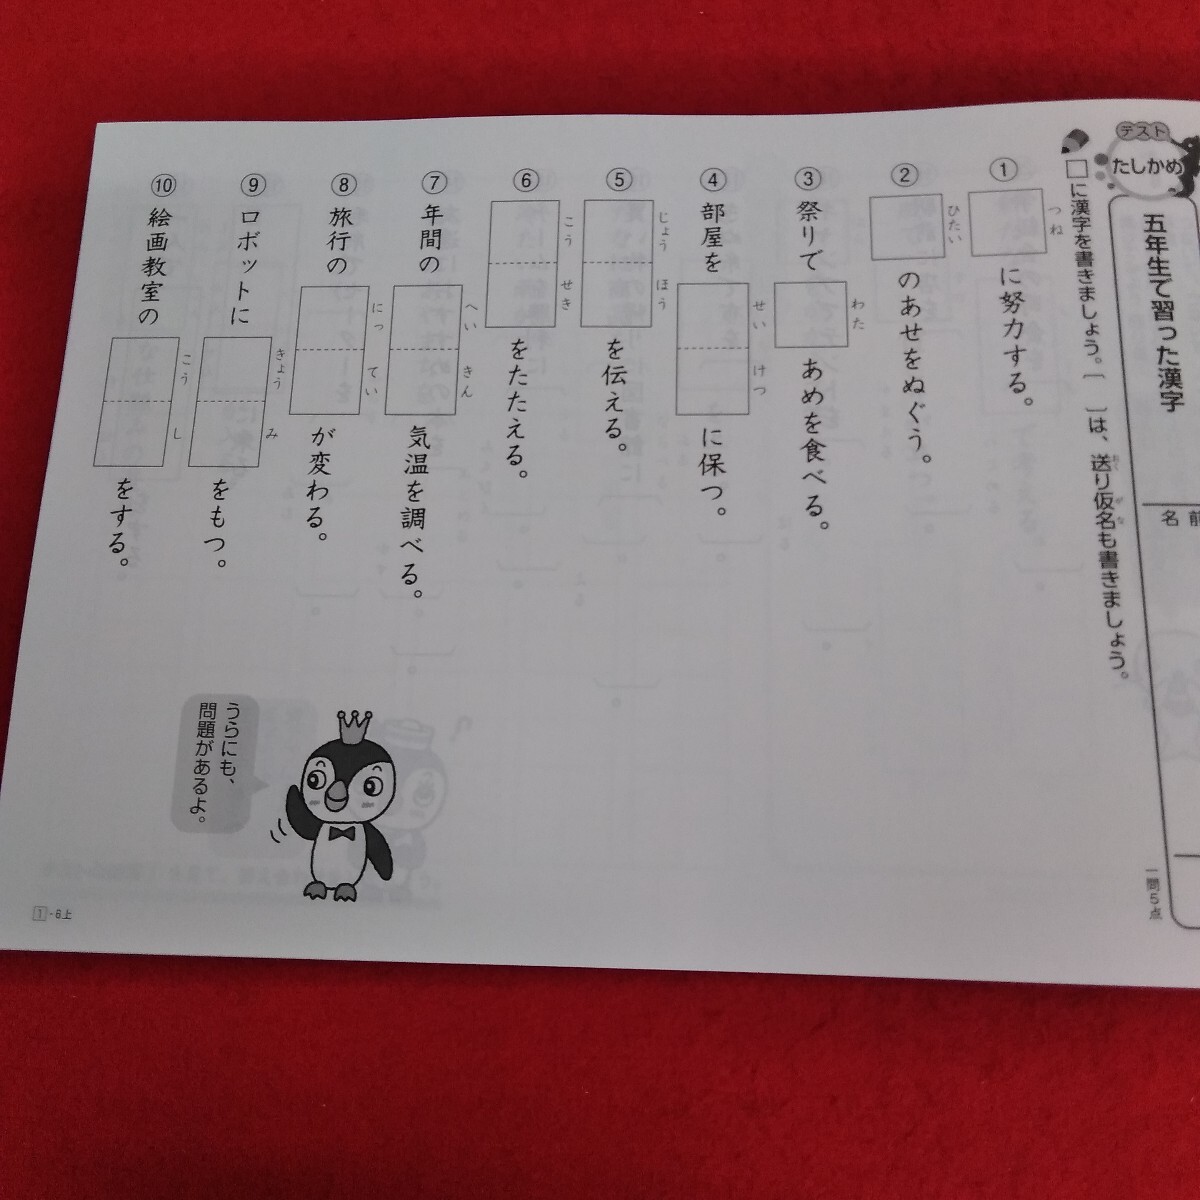 テスト
たしかめ
五年生で習った漢字
名前
一問5点
□に漢字を書きましょう。〔　〕は、送り仮名も書きましょう。
おく
がな
①
つね
に努力する。
②
ひたい
のあせをぬぐう。
③祭りで
わた
あめを食べる。
④部屋を
せい けつ
に保つ。
⑤
じょう ほう
を伝える。
⑥
こう せき
をたたえる。
⑦年間の
へい きん
気温を調べる。
⑧旅行の
にっ てい
が変わる。
⑨ロボットに
きょう み
をもつ。
⑩絵画教室の
こう し
をする。
うらにも、
問題があるよ。
1-6上